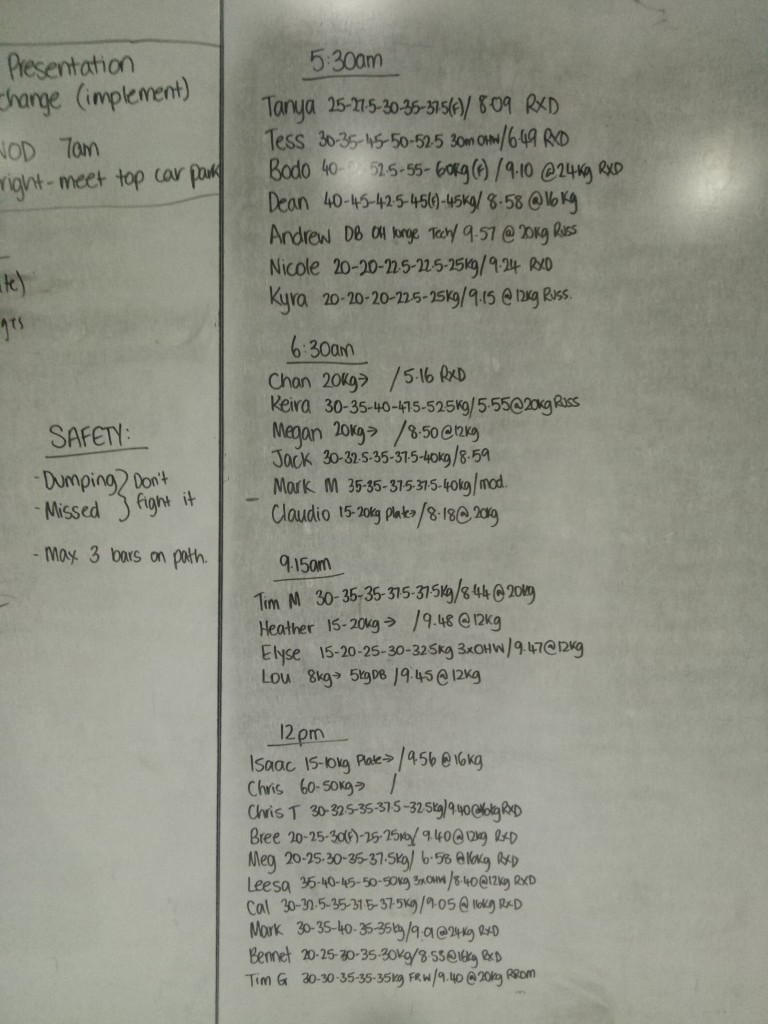 Presentation
change (implement)
WOD 7am
right-meet top car park
SAFETY:
-Dumping } Don't
-Missed } fight it
- Max 3 bars on path.
5:30am
Tanya 25-27.5-30-35-37.5(f)/ 8.09 RXD
Tess 30-35-45-50-52.5 30m OHW/6.49 RXD
Bodo 40- 52.5-55-60kg(f) /9.10 @24kg RXD
Dean 40-45-42.5-45(f)-45kg/ 8.58 @16kg
Andrew DB OH lunge Tech/ 9.57 @ 20kg Russ
Nicole 20-20-22.5-22.5-25kg/9.24 RXD
Kyra 20-20-20-22.5-25kg/9.15 @12kg Russ.
6:30am
Chan 20kg→ /5.16 RXD
Keira 30-35-40-47.5-52.5kg/5.55@20kg Russ
Megan 20kg→ /8.50 @12kg
Jack 30-32.5-35-37.5-40kg/8.59
Mark M 35-35-37.5-37.5-40kg/mod.
Claudio 15-20kg Plate→/8.18@20kg
9.15am
Tim M 30-35-35-37.5-37.5kg/8.44 @20kg
Heather 15-20kg→ /9.48 @12kg
Elyse 15-20-25-30-32.5kg 3xOHW/9.47@12kg
Lou 8kg→ 5kgDB /9.45 @12kg
12pm
Isaac 15-10kg Plate→/9.56 @16kg
Chris 60-50kg→ /
Chris T 30-32.5-35-37.5-32.5kg/9.40@16kg RXD
Bree 20-25-30(f)-25-25kg/ 9.40@12kg RXD
Meg 20-25-30-35-37.5kg/ 6.58 @16kg RXD
Leesa 35-40-45-50-50kg 3xOHW/8.40@12kg RXD
Cal 30-32.5-35-37.5-37.5kg/9.05 @16kg RXD
Mark 30-35-40-35-35kg/9.01@24kg RXD
Bennet 20-25-30-35-30kg/8.53@16kg RXD
Tim G 30-30-35-35-35kg FRW/9.40 @20kg